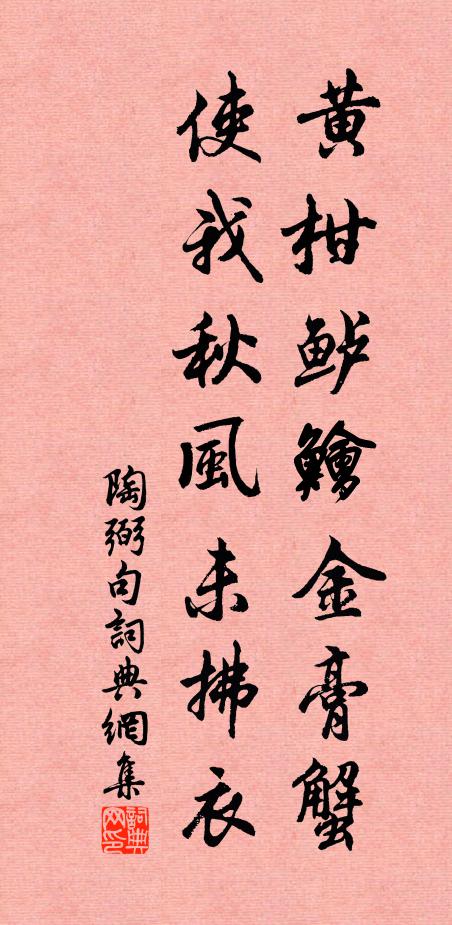 黄柑鲈鱠金膏蟹
使我秋風未拂衣
陶弼句詞典網集
詞典网印